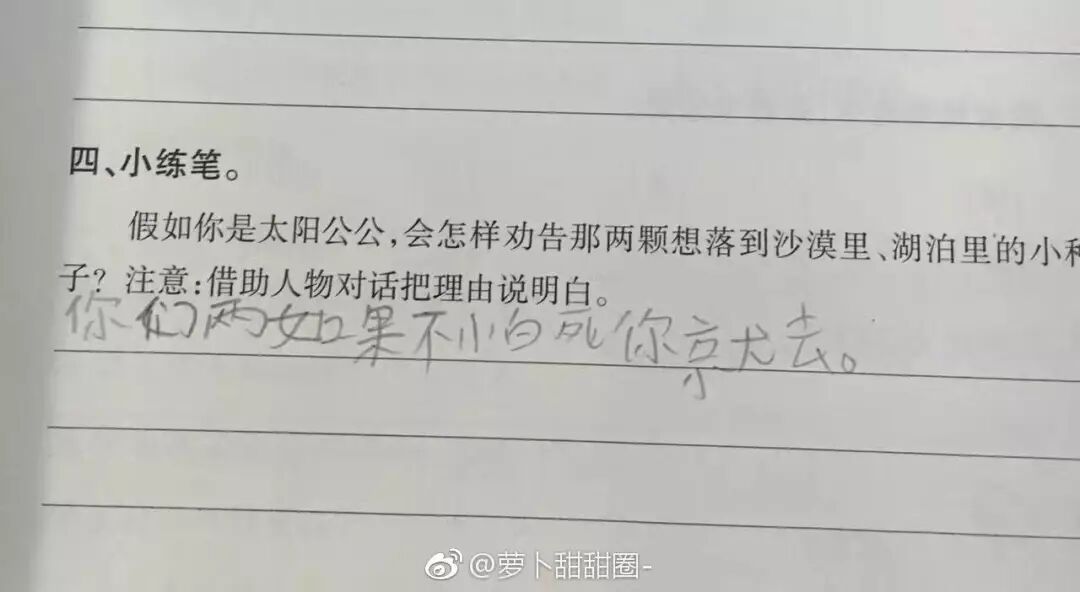 四、小练笔。
假如你是太阳公公,会怎样劝告那两颗想落到沙漠里、湖泊里的小种
子？注意:借助人物对话把理由说明白。
你们两如果不小白死你就去。
@萝卜甜甜圈-